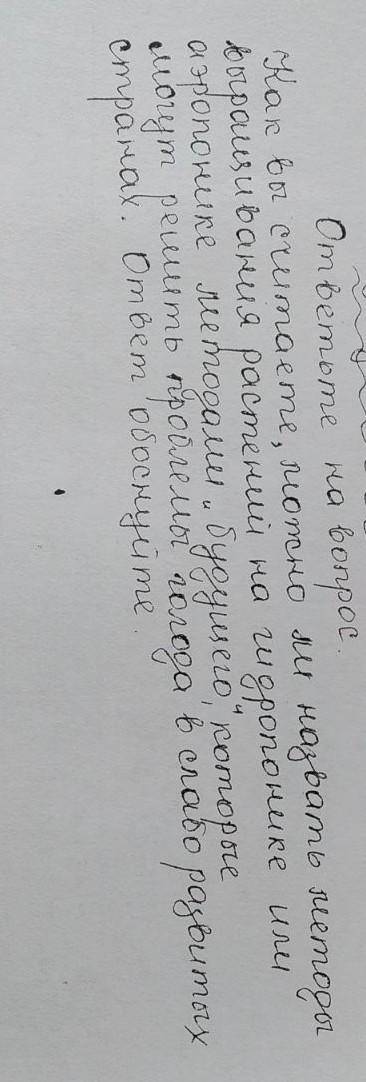 Ответьте на вопрос.
Как вы считаете, можно ли назвать методы
выращивания растений на гидропонике или
аэропонике методами "будущего", которые
могут решить проблемы голода в слабо развитых
странах. Ответ обоснуйте.